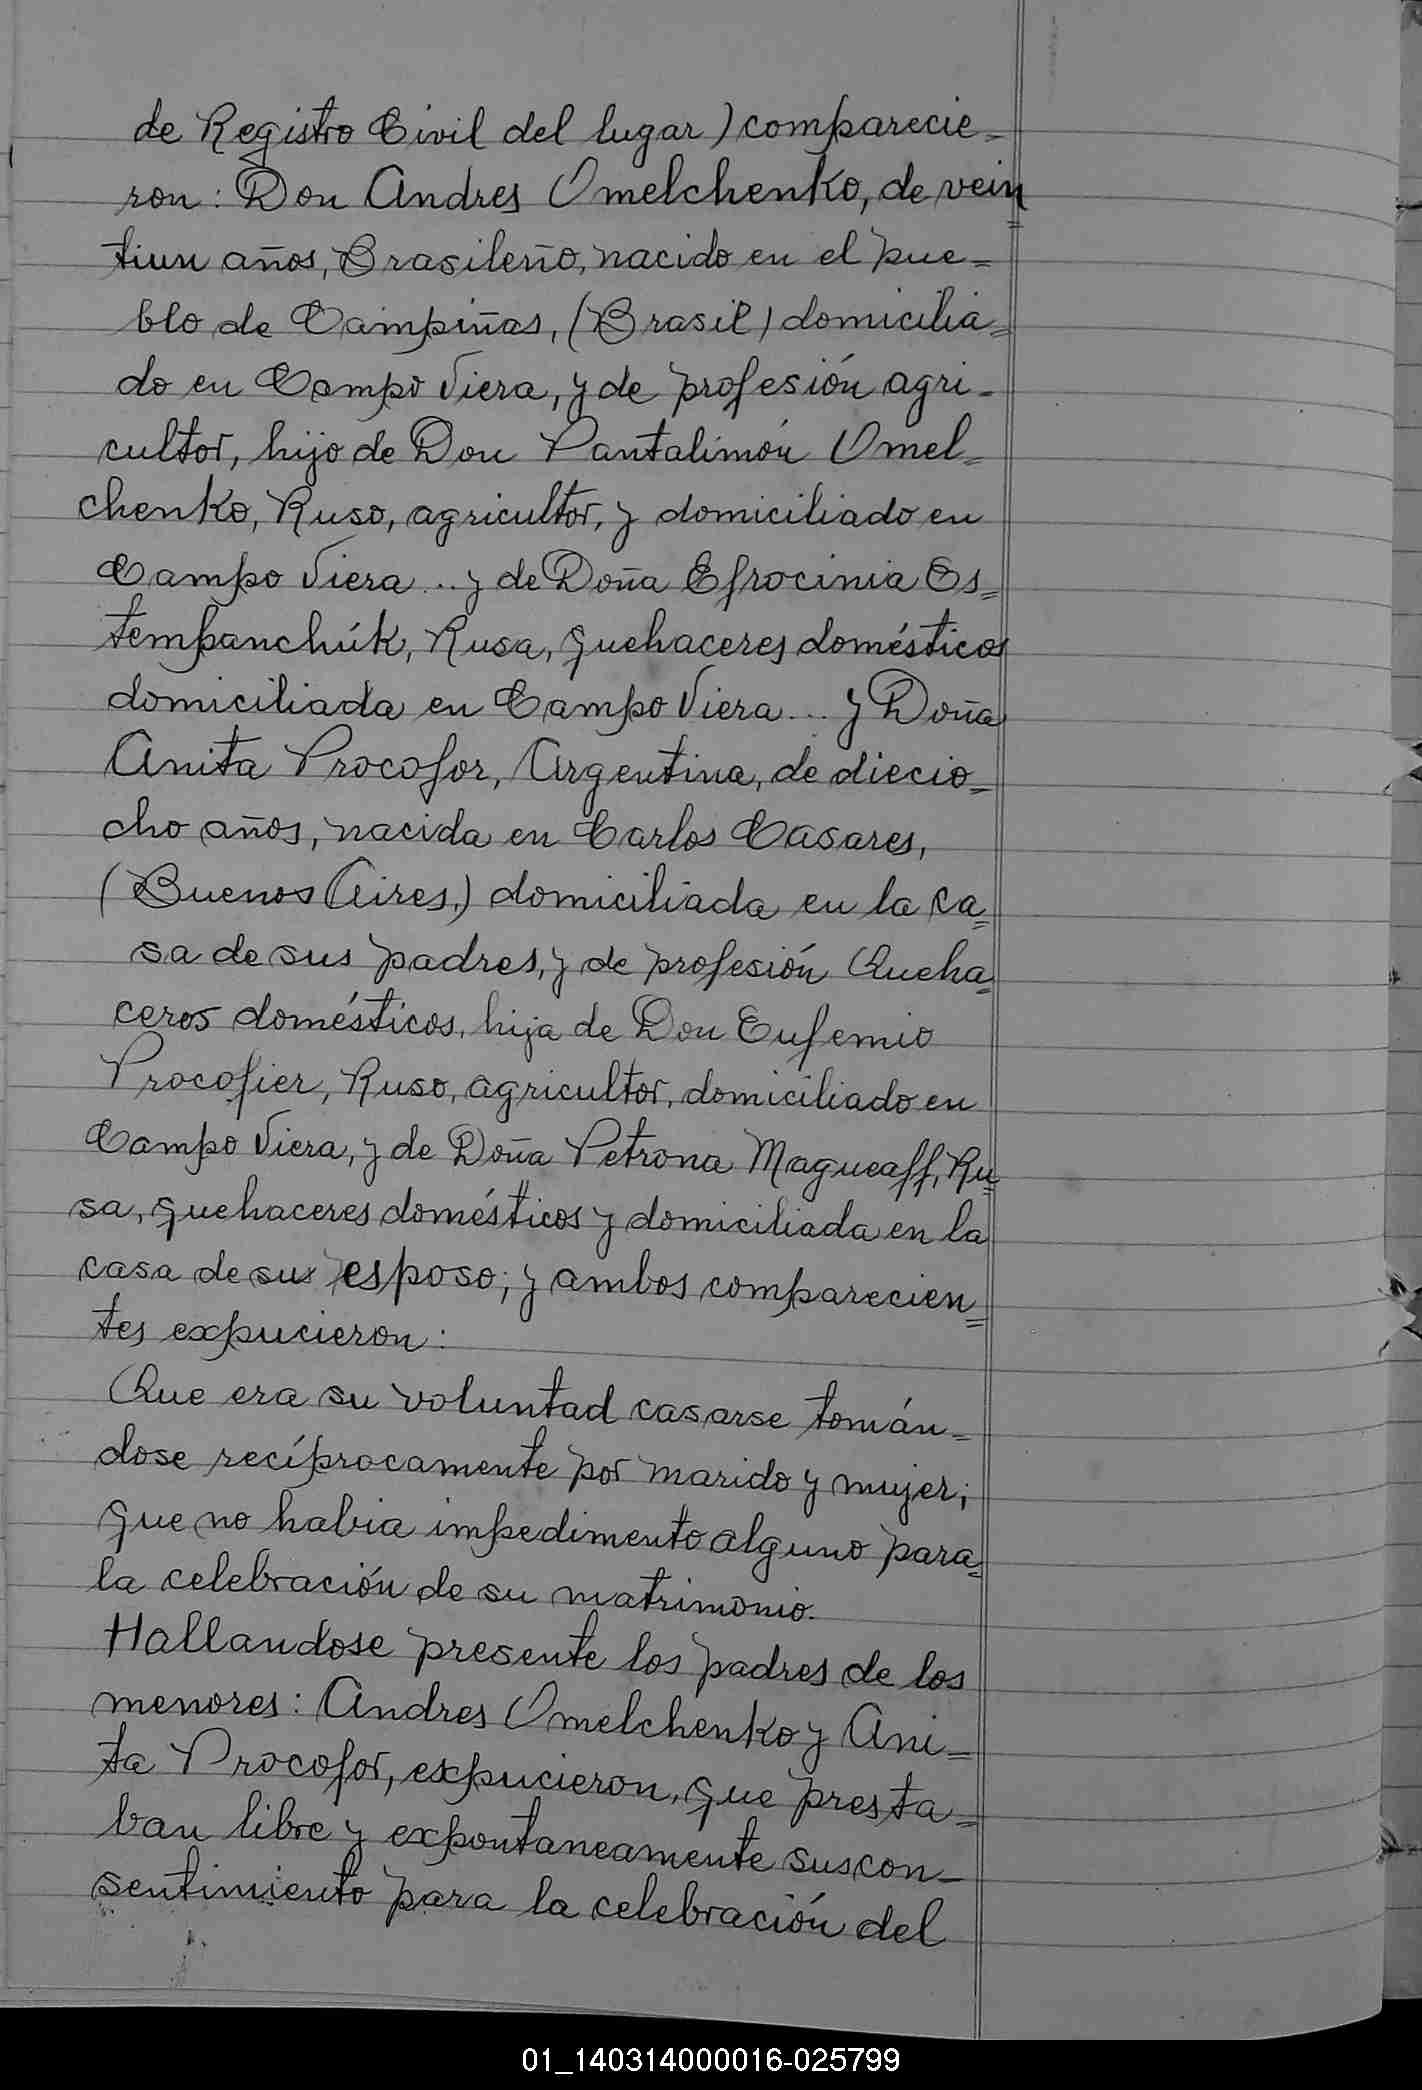 de Registro Civil del lugar) comparecie=
ron: Don Andres Omelchenko, de vein
tiun años, Brasileño, nacido en el pue=
blo de Campiñas, (Brasil) domicilia=
do en Campo Viera, y de profesión agri-
cultor, hijo de Don Pantalimón Omel=
chenko, Ruso, agricultor, y domiciliado en
Campo Viera... y de Doña Efrocinia Os=
tempanchúk, Rusa, quehaceres domésticos
domiciliada en Campo Viera... y Doña
Anita Procofor, Argentina, de diecio=
cho años, nacida en Carlos Casares,
(Buenos Aires,) domiciliada en la ca=
sa de sus padres, y de profesión Queha=
ceros domésticos, hija de Don Eufemio
Procofier, Ruso, agricultor, domiciliado en
Campo Viera, y de Doña Petrona Magueaff, Ru=
sa, quehaceres domésticos y domiciliada en la
casa de su esposo; y ambos comparecien=
tes expucieron:
Que era su voluntad casarse tomán=
dose recíprocamente por marido y mujer;
que no habia impedimento alguno para=
la celebración de su matrimonio.
Hallandose presente los padres de los
menores: Andres Omelchenko y Ani=
ta Procofor, expucieron, que presta=
ban libre y expontaneamente sus con-
sentimiento para la celebración del
01_140314000016-025799